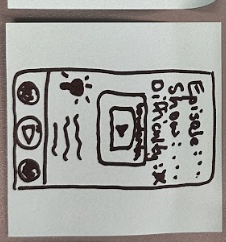 Episode: ...
Show: ...
Difficulty: X